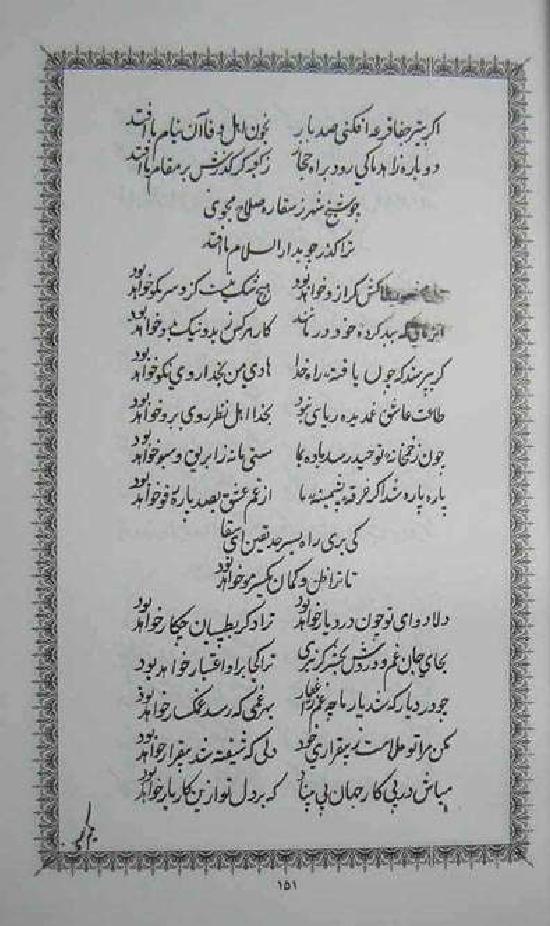 اگر بتیر جفا قرعه افکنی صد بار بخون اهل وفا آن بنام ما افتد
دوباره زاهد ما کی رود براه حجاز ز کعبه گر گذرش بر مقام ما افتد
چو شیخ شهر ز سقا ره صلاح مجوی
ترا گذر چو بدار السلام ما افتد
کش گر از و خواهد بود هیچ شک نیست کزو سر مگو خواهد بود
بد کرده خود در ماند کار هر کس بد و نیک بدو خواهد بود
گر بپرسند که چون یافته راه خدا هادی من بخدا روی نکو خواهد بود
طاعت عاشق غمدیده ریایی نبود بخدا اهل نظر روی برو خواهد بود
چون ز خمخانه توحید رسد باده بما مستی ما نه ز ابریق و سبو خواهد بود
پاره پاره شد اگر خرقه پشمینه ما از غم عشق بصد پاره رفو خواهد بود
کی بری راه بسر حد یقین ای سقا
تا ترا ظن و گمان یکسر مو خواهد بود
دلا دوای تو چون درد یار خواهد بود ترا دگر بطبیبان چکار خواهد بود
بجای جان غم و دردش بحشر گر نبری ترا کجا براه اعتبار خواهد بود
چو درد یار کند یار ما چه غم ز اغیار بهر غمی که رسد غمگسار خواهد بود
مکن مرا تو ملامت ز بیقراری خود دلی که شیفته شد بیقرار خواهد بود
مباش در پی کار جهان بی بنیاد که بر دل تو ازین کار بار خواهد بود
۱۵۱